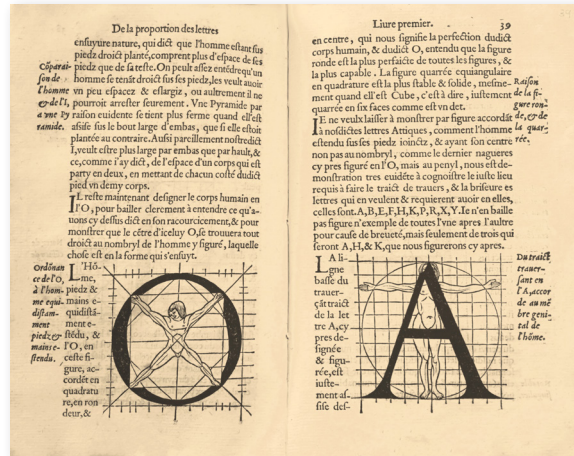 De la proportion des lettres
ensuyure nature, qui dict que l'homme estant sus
piedz droict planté, comprent plus d'espace de ses
piedz que de sa teste. On peult assez entẽdre qu'un
homme se tenãt droict sus ses piedz, les veult auoir
vn peu espacez & eslargiz, ou aultrement il ne
pourroit arrester seurement. Vne Pyramide par
raison euidente se tient plus ferme quand ell'est
assise sus le bout large d'embas, que si elle estoit
plantée au contraire. Aussi pareillement nostredict
I, veult estre plus large par embas que par hault, &
ce, comme i'ay dict, de l'espace d'un corps qui est
party en deux, en mettant de chacun costé dudict
pied vn demy corps.
Cõparai-
son de
l'homme
& de l'I,
a vne Py
ramide.
IL reste maintenant designer le corps humain en
l'O, pour bailler clerement à entendre ce qu'a-
uons cy dessus dict en son racourcicement, & pour
monstrer que le cẽtre d'iceluy O, se trouuera tout
droict au nombryl de l'homme y figuré, laquelle
chose est en la forme qui s'ensuyt.
Ordõnan
ce de l'O,
à l'hom-
me equi-
distam-
ment
piedz &
mains e-
stendu.
L'Hõ-
me,
piedz &
mains e-
quidistã-
ment e-
stẽdu, &
l'O, en
ceste fi-
gure, ac-
cordẽt en
quadratu
re, en ron
deur, &
Liure premier. 39
en centre, qui nous signifie la perfection dudict
corps humain, & dudict O, entendu que la figure
ronde est la plus perfaicte de toutes les figures, &
la plus capable. La figure quarrée equiangulaire
en quadrature est la plus stable & solide, mesme-
ment quand ell'est Cube, c'est à dire, iustement
quarrée en six faces comme est vn det.
IE ne veulx laisser à monstrer par figure accordãt
à nosdictes lettres Attiques, comment l'homme
estendu sus ses piedz ioinctz, & ayant son centre
non pas au nombryl, comme le dernier nagueres
cy pres figuré en l'O, mais au penyl, nous est de-
monstration tres euidẽte à cognoistre le iuste lieu
requis à faire le traict de trauers, & la briseure es
lettres qui en veulent & requierent auoir en elles,
celles sont. A, B, E, F, H, K, P, R, X, Y. Ie n'en baille
pas figure n'exemple de toutes l'vne apres l'aultre
pour cause de breueté, mais seulement de trois qui
seront A, H, & K, que nous figurerons cy apres.
Raison
de la fi-
gure ron-
de, & de
la quar-
rée.
LA li-
gne
basse du
trauer-
çãt traict
de la let
tre A, cy
pres de-
signée
& figu-
rée, est
iuste-
ment as-
sise des-
Du traict
trauer-
sant en
l'A, accor
de au mẽ
bre geni-
tal de
l'hõme.